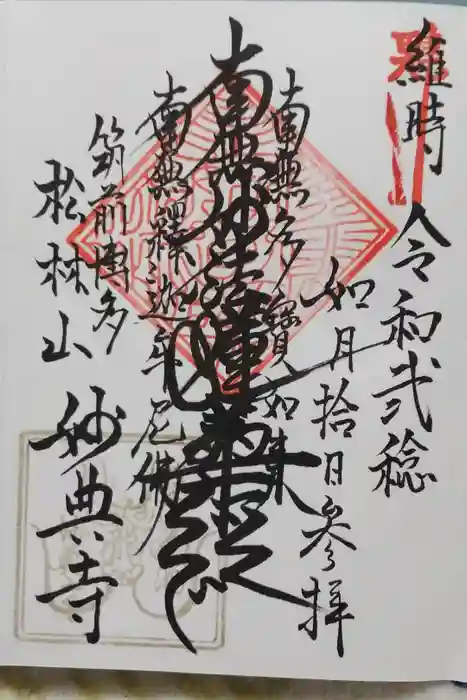 維時
令和弐稔
如月拾日参拝
南無多寳如来
南無妙法蓮華経
南無釋迦牟尼佛
筑前博多
松林山 妙典寺